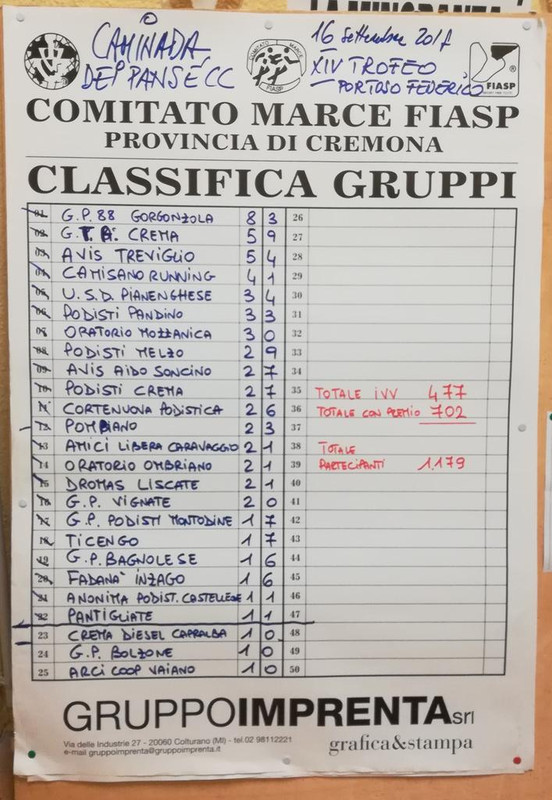 CAMINADA
DEI PANSÈCC
COMITATO MARCE
FIASP
16 Settembre
XIV TROFEO
PORTOSO FEDERICO
FIASP
COMITATO MARCE FIASP
PROVINCIA DI CREMONA
CLASSIFICA GRUPPI
01 G.P. 88 GORGONZOLA 83 26
02 G.T.A. CREMA 59 27
03 AVIS TREVIGLIO 54 28
04 CAMISANO RUNNING 41 29
05 U.S.D. PIANENGHESE 34 30
06 PODISTI PANDINO 33 31
07 ORATORIO MOZZANICA 30 32
08 PODISTI MELZO 29 33
09 AVIS AIDO SONCINO 27 34
10 PODISTI CREMA 27 35 TOTALE IVV 477
11 CORTENUOVA PODISTICA 26 36 TOTALE CON PREMIO 702
12 POMBIANO 23 37
13 AMICI LIBERA CARAVAGGIO 21 38 TOTALE
14 ORATORIO OMBRIANO 21 39 PARTECIPANTI 1.179
15 DROMAS LISCATE 21 40
16 G.P. VIGNATE 20 41
17 G.P. PODISTI MONTODINE 17 42
18 TICENGO 17 43
19 G.P. BAGNOLESE 16 44
20 FADANA' INZAGO 16 45
21 ANONIMA PODIST. CASTELLESE 11 46
22 PANTIGLIATE 11 47
23 CREMA DIESEL CAPRALBA 10 48
24 G.P. BOLZONE 10 49
25 ARCI COOP VAIANO 10 50
GRUPPOIMPRENTA srl
Via delle Industrie 27 - 20060 Colturano (MI) - tel.02 98112221
e-mail gruppoimprenta@gruppoimprenta.it
grafica&stampa